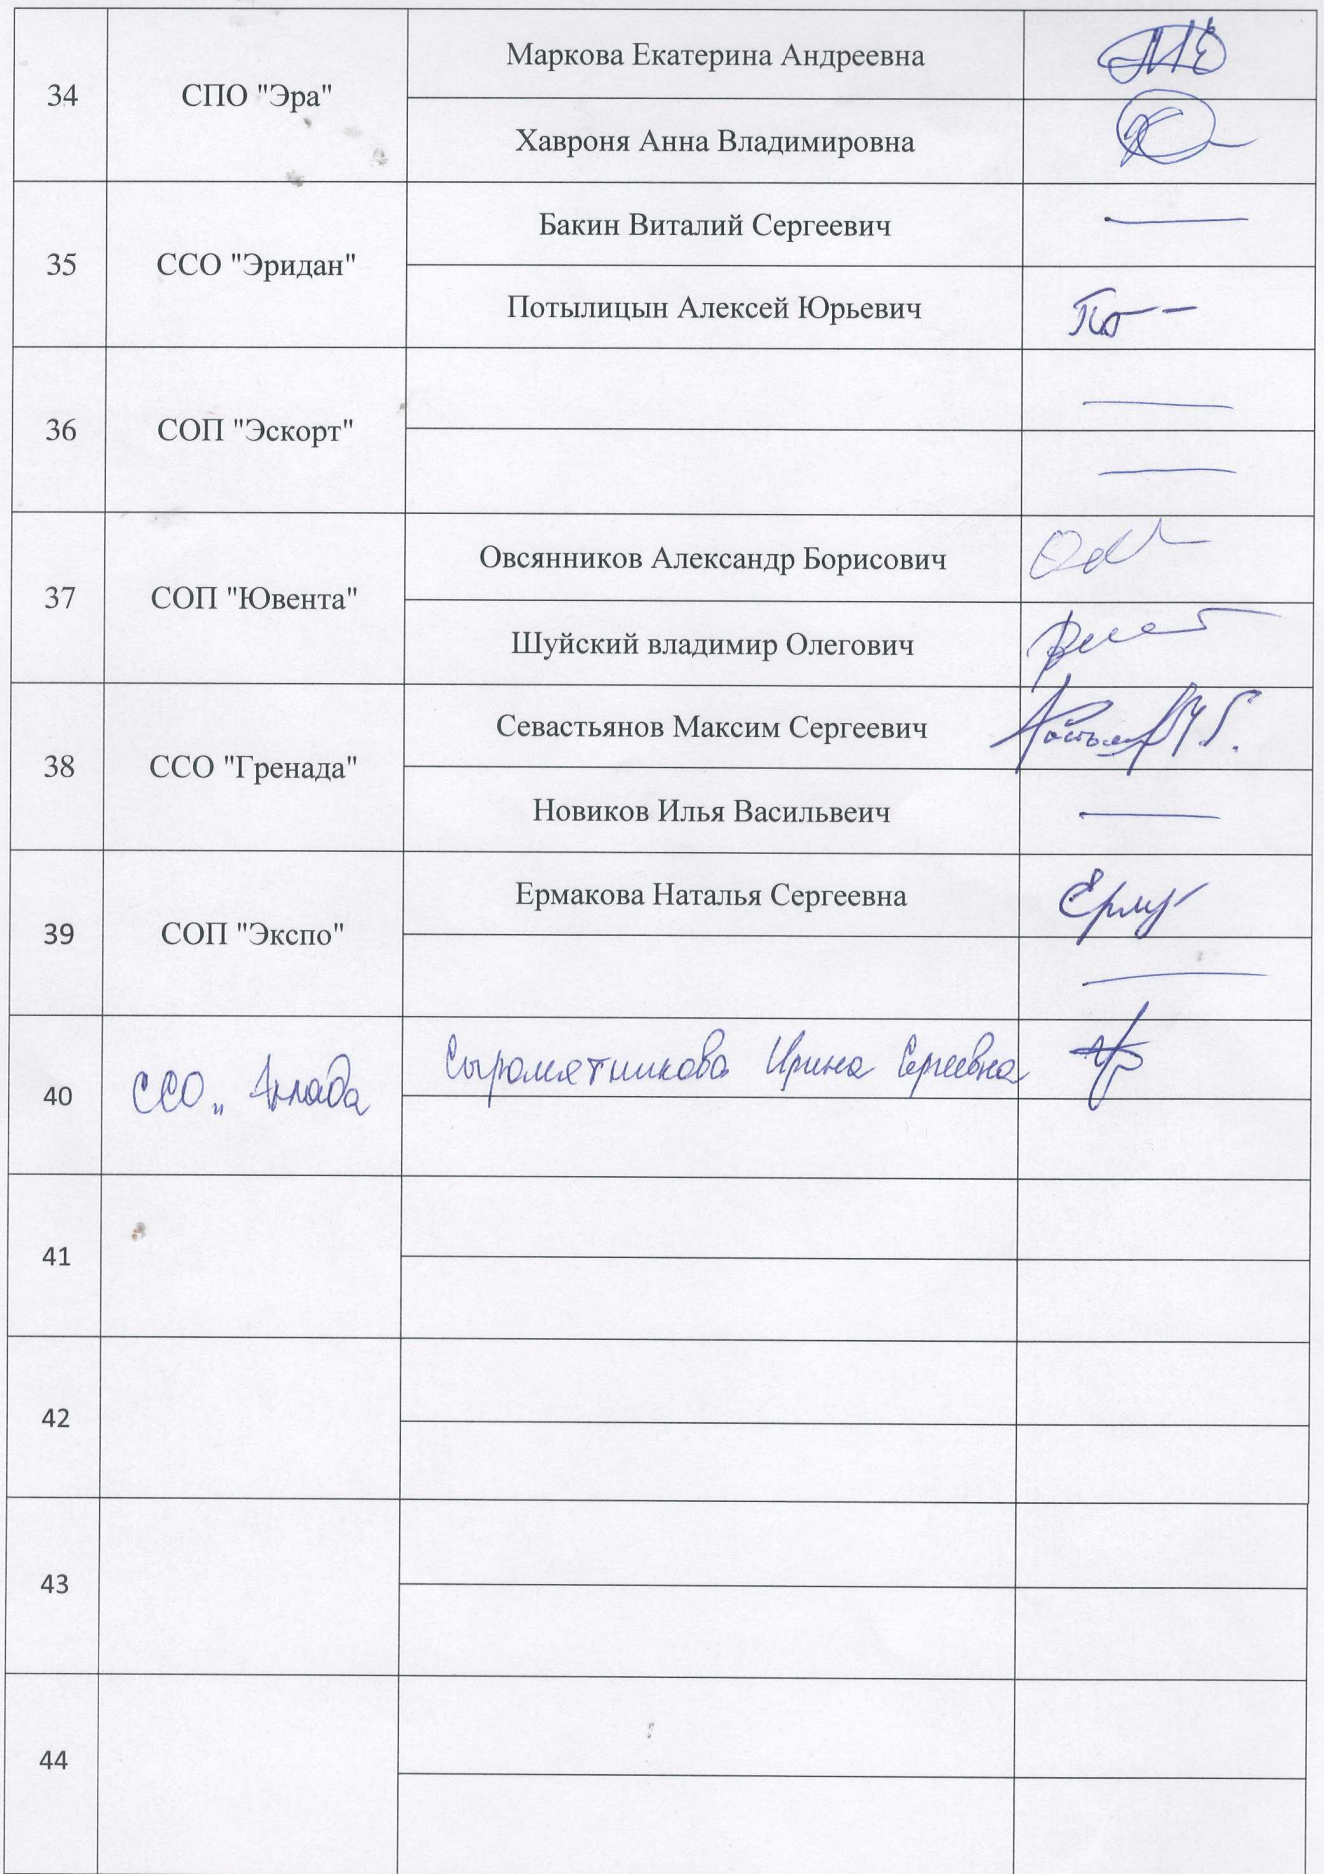 34
СПО "Эра"
Маркова Екатерина Андреевна
Хавроня Анна Владимировна
35
ССО "Эридан"
Бакин Виталий Сергеевич
Потылицын Алексей Юрьевич
36
СОП "Эскорт"
37
СОП "Ювента"
Овсянников Александр Борисович
Шуйский владимир Олегович
38
ССО "Гренада"
Севастьянов Максим Сергеевич
Новиков Илья Васильвеич
39
СОП "Экспо"
Ермакова Наталья Сергеевна
40
ССО „
Сыромятникова Ирина Сергеевна
41
42
43
44